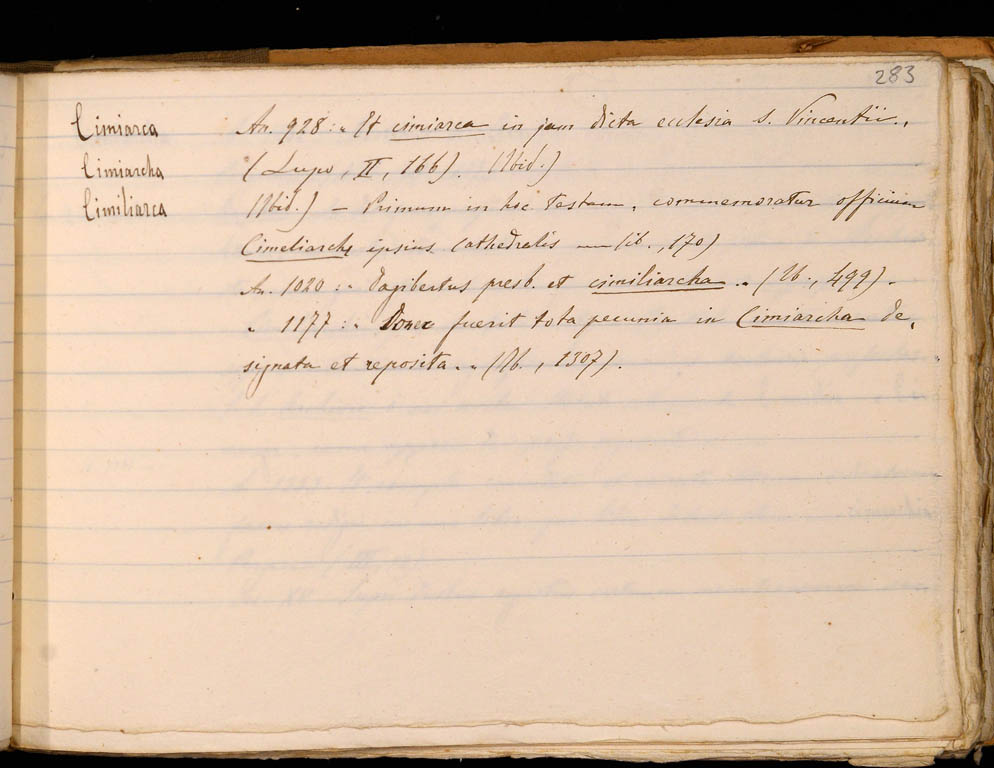 283
Cimiarca An. 928: „ Et cimiarca in jam dicta ecclesia s. Vincentii.„
Cimiarcha (Lupo, II, 166). (Ibid.)
Cimiliarca (Ibid.) – Primum in hoc testam. commemoratur officium
Cimeliarchę ipsius cathedralis — (ib., 170)
An. 1020: „ Dagibertus presb. et cimiliarcha „ (Ib., 499).
„ 1177: „ Donec fuerit tota pecunia in Cimiarcha de„
signata et reposita „ (Ib., 1307).